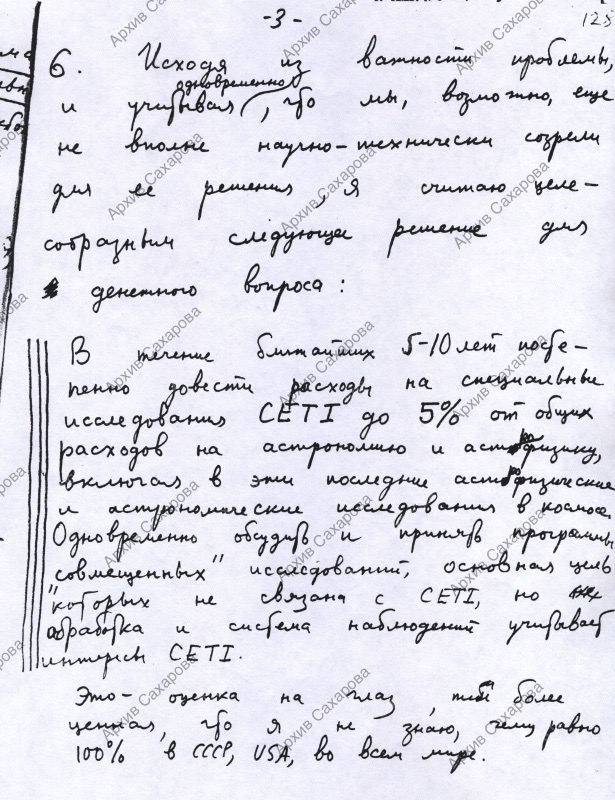 -3-
123
6. Исходя из важности проблемы,
одновременно
и учитывая, что мы, возможно, еще
не вполне научно-технически созрели
для ее решения, я считаю целе-
сообразным следующее решение для
денежного вопроса:
В течение ближайших 5-10 лет посте-
пенно довести расходы на специальные
исследования CETI до 5% от общих
расходов на астрономию и астрофизику,
включая в эти последние астрофизические
и астрономические исследования в космосе.
Одновременно обсудить и принять программы
"совмещенных" исследований, основная цель
которых не связана с CETI, но
обработка и система наблюдений учитывает
интересы CETI.
Это - оценка на глаз, тем более
ценная, что я не знаю, чему равно
100% в СССР, USA, во всем мире.
Архив Сахарова